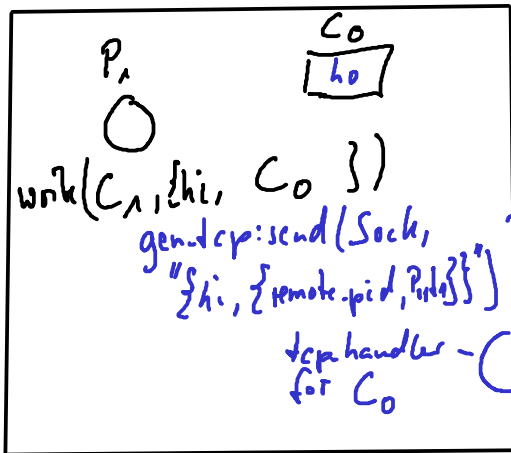 P₁
C₀
h0
work(C₁,{hi, C₀ })
gen_tcp:send(Sock,
"{hi, {remote_pid,
tcp handler -
for C₀